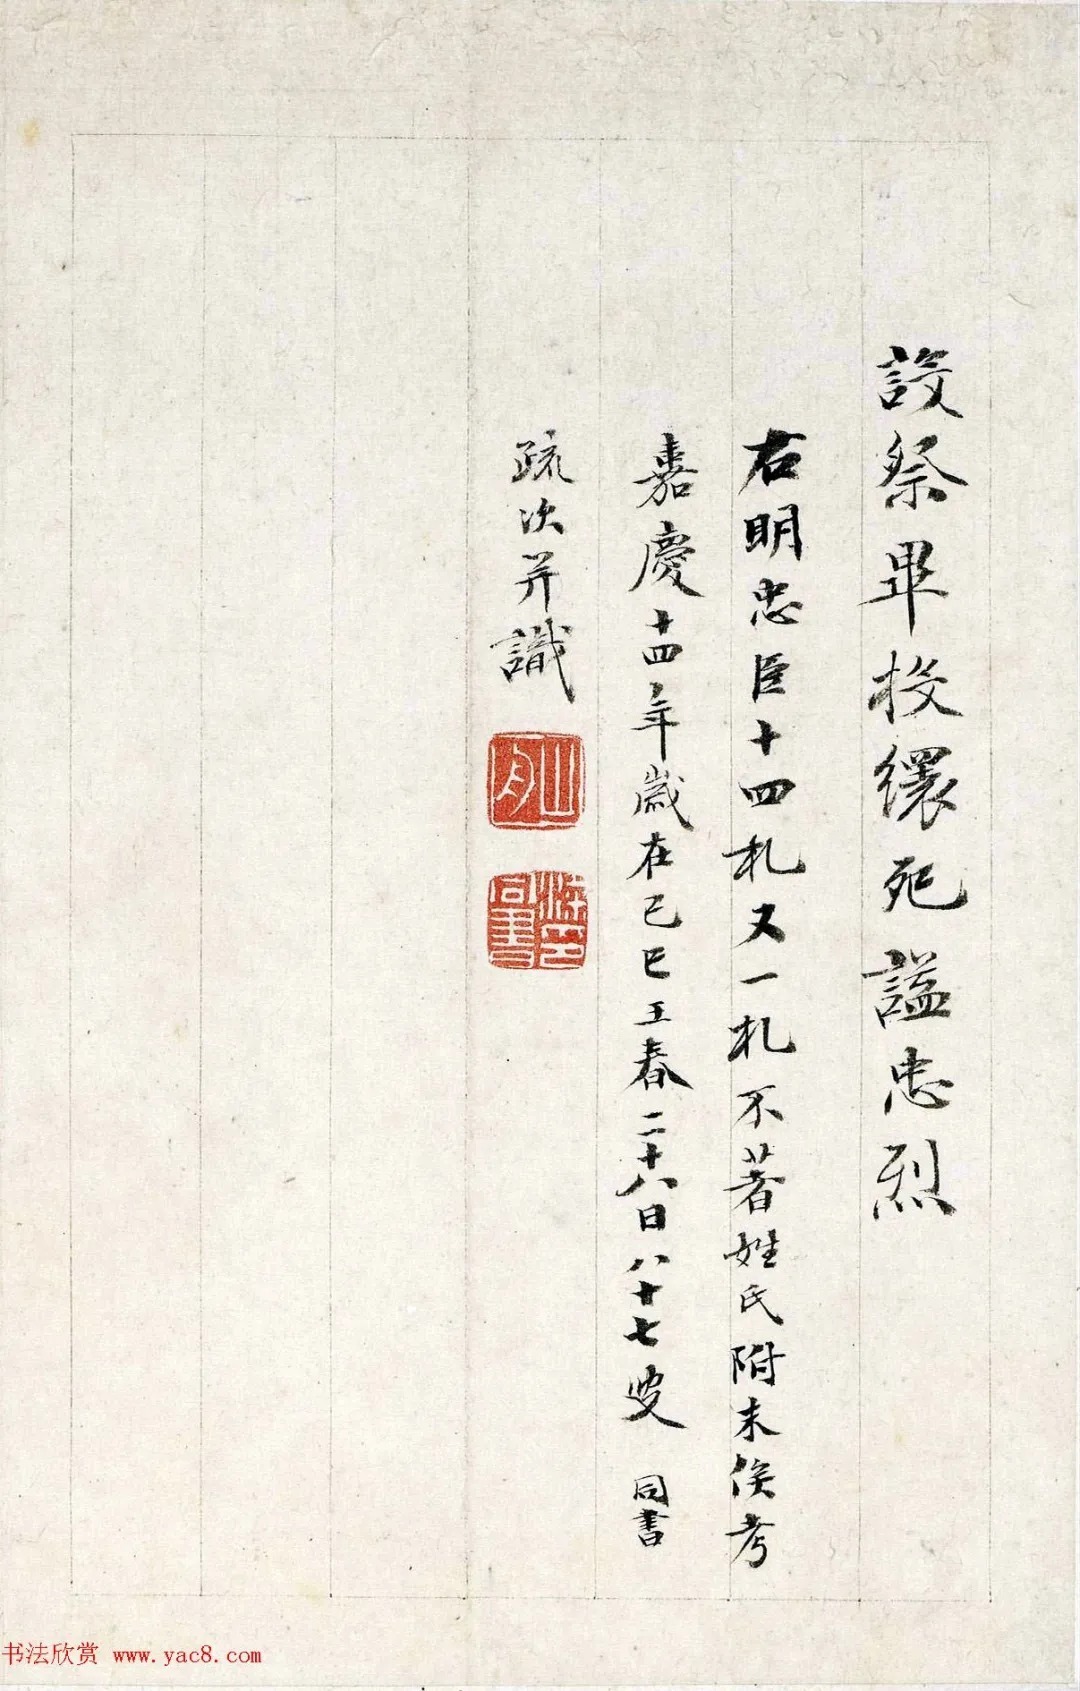 設祭畢投繯死謚忠烈
右明忠臣十四札又一札不著姓氏附末俟考
嘉慶十四年歲在己巳王春二十八日八十七叟 同書
疏次并識
山舟
梁氏同書
书法欣赏 www.yac8.com